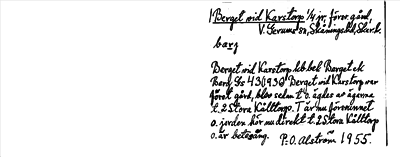 Berget vid Karstorp 1/4 jr, förer gård,
V. Gerums sn, Skånings hd, Skar.l.
barj
Berget vid Karstorp kb. bek Berget ek
Berg Gs 430930 Berget vid Karstorp var
förut gård, blev sedan t o. ägdes av ägarna
t. 2 Stora Källtorp. T är nu försvunnet
o. jorden hör nu direkt t. 2 Stora Källtorp
o. är betesäng. P:O. Alström 1955.